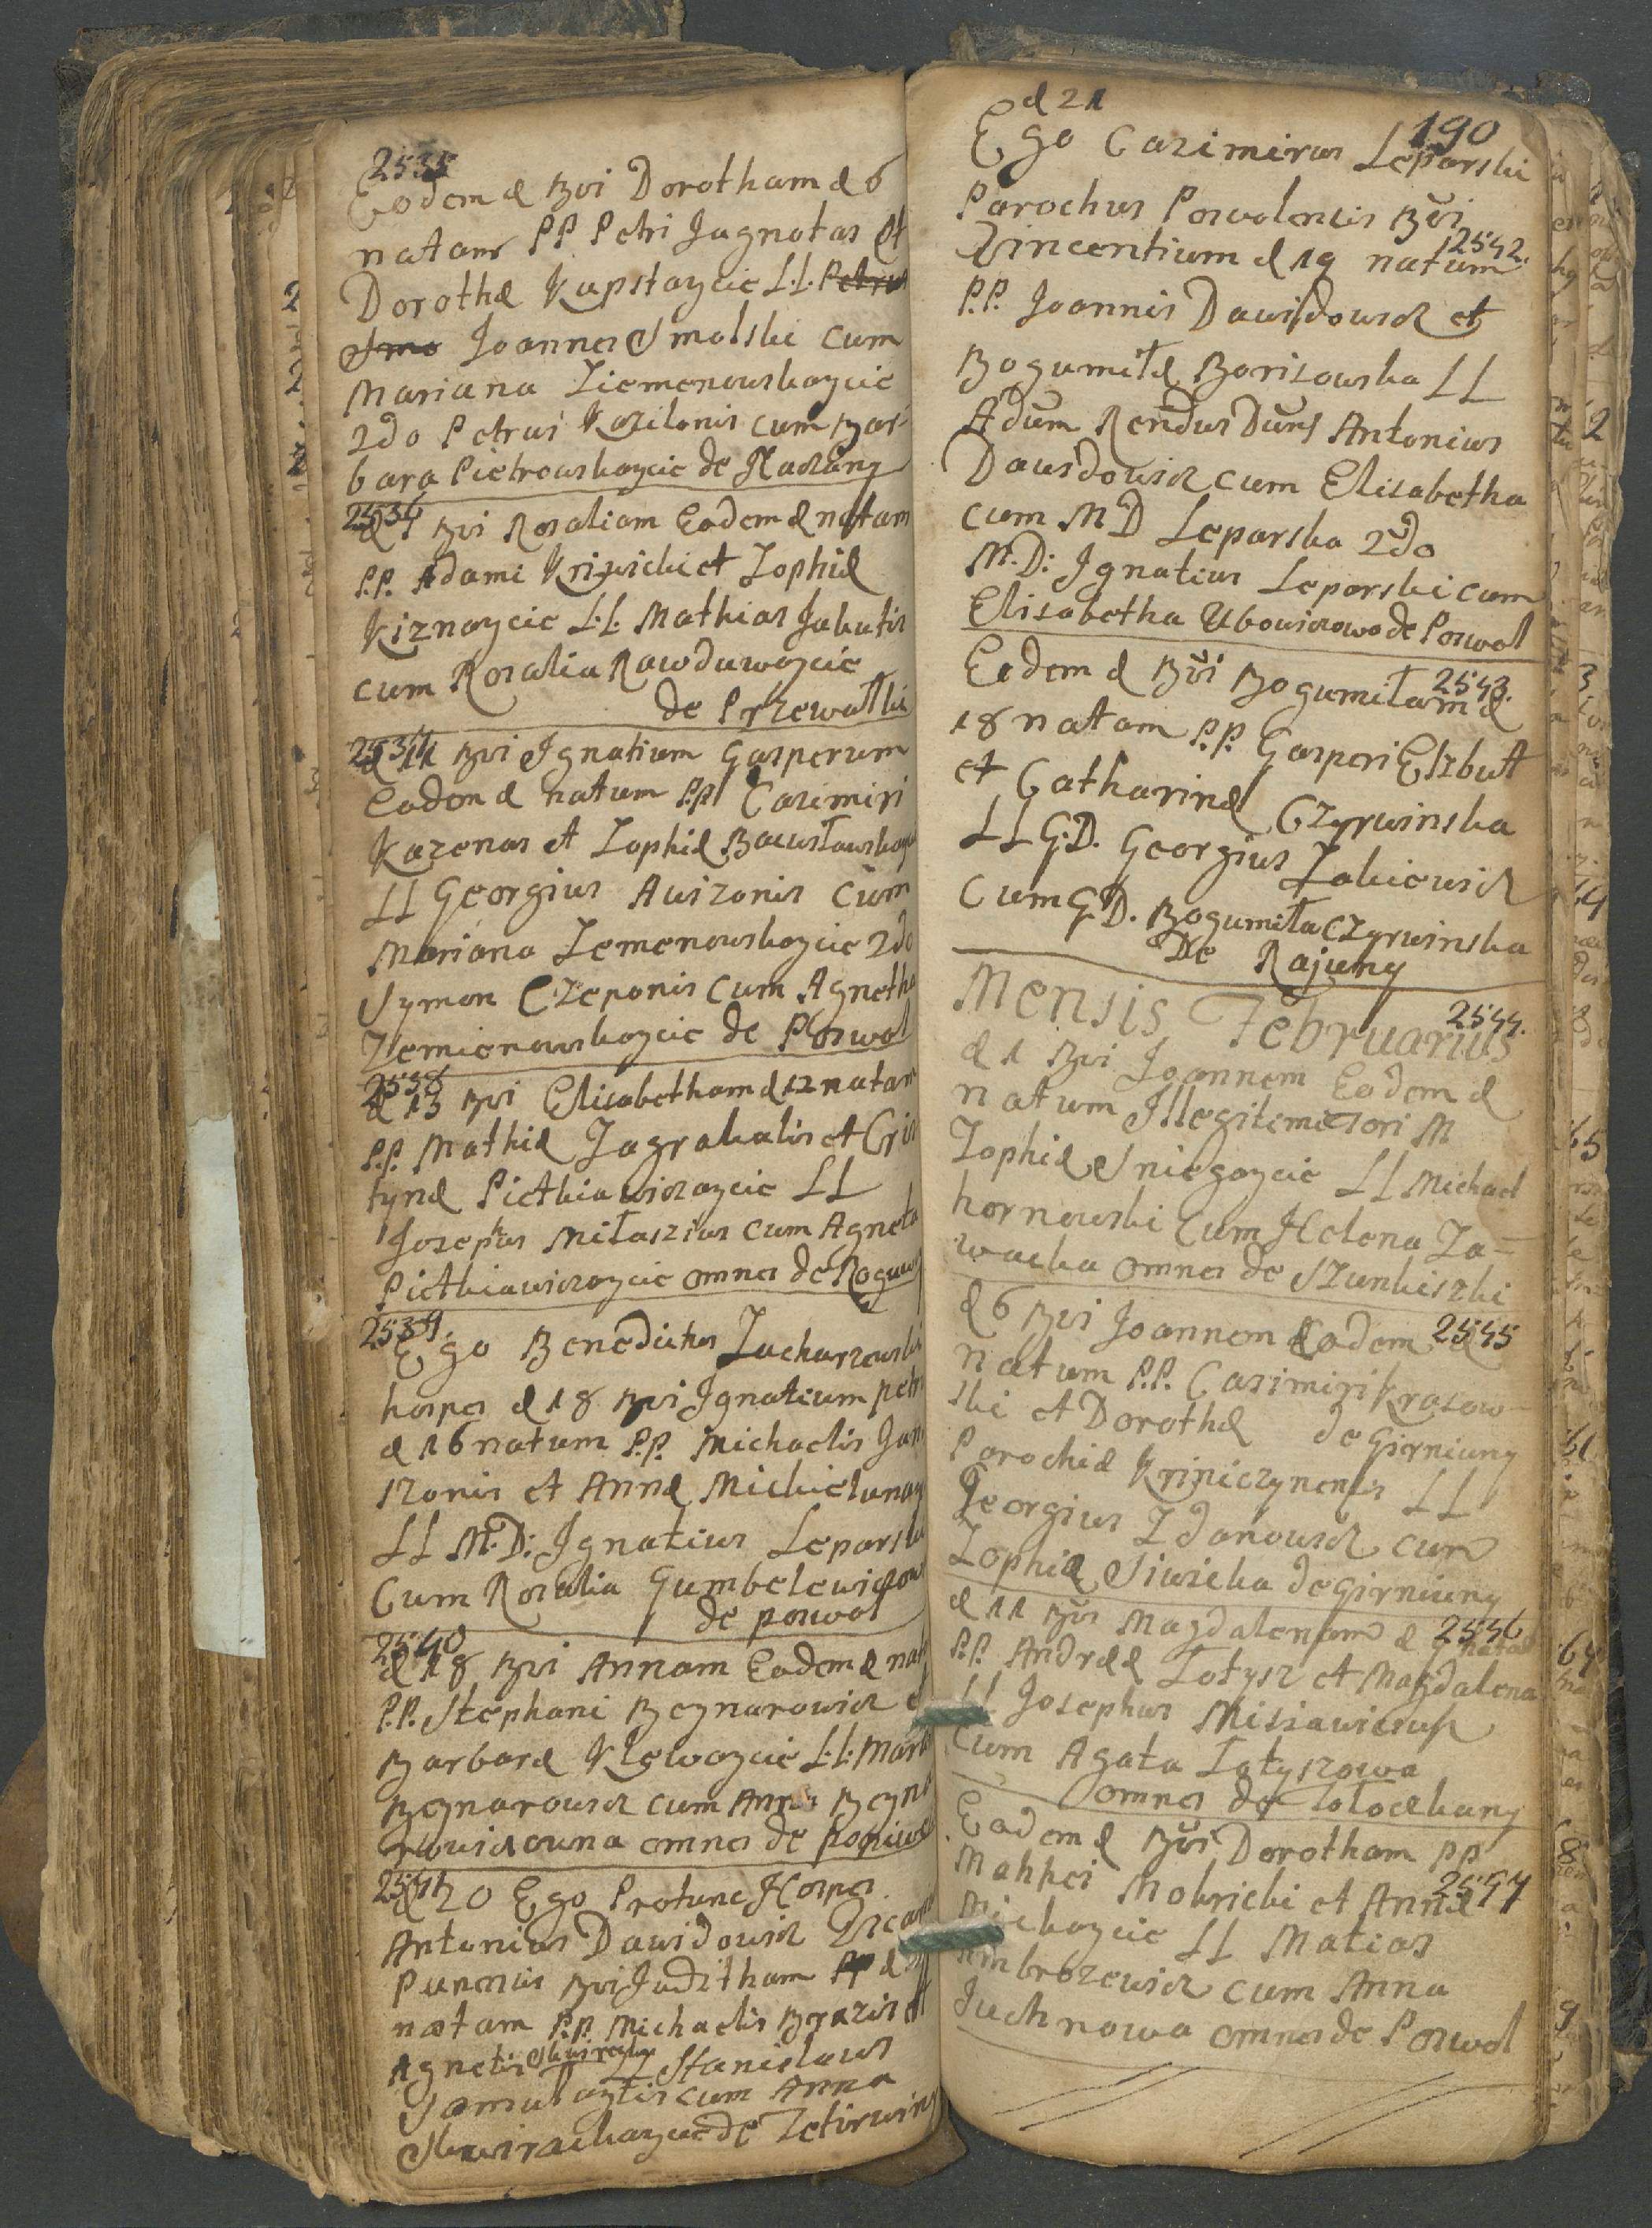 2535
Eodem d Bvi Dorotham d 6
natam P.P. Petri Jagnotas et
Dorothæ Kupstaycie L.L. Petrus
Smo Joannes Smolski cum
Mariana Ziemenowskaycie
2do Petrus Kazilonis cum Bar-
bara Pietrowskaycie de
2536
d 7 Bvi Rosaliam Eadem d natam
P.P. Adami Krizicki et Zophiæ
Kiznaycie L.L. Mathias Jakutis
cum Rosalia Rawduwaycie
de Przewałki
2537
d 11 Bvi Ignatium Gasperum
Eadem d natum P.P. Casimiri
Kazenas et Zophiæ
LL Georgius Avizonis cum
Mariana Zemenowskaycie 2do
Symon Czeponis cum Agnetha
Zemienowskaycie de Poswol
2538
d 13 Bvi Elisabetham d 12 natam
P.P. Mathiæ Zagrakalis et Cris
tynæ Pietkiawiczaycie LL
Josephus Mitaszius cum Agneta
Pietkiawiczaycie omnes de
2539
Ego Benedictus Zacharzewski
hospes d 18 Bvi Ignatium petr
d 16 natum P.P. Michaelis Jan
szonis et Annæ Mickielunay
LL M.D: Ignatius Leparski
Cum Rosalia Gumbelewiczow
de poswol
2540
d 18 Bvi Annam Eadem d nat
P.P. Stephani Beynarowicz et
Barbaræ LL: Mark
Beynarowicz cum Anna Beyna
rowiczowna omnes de
2541
d 20 Ego Protunc Hospes
Antonius Dawidowicz Vicar
Punensis Bvi Juditham
natam P.P. Michaelis Brazis et
Agnetis LL Stanislaus
cum Anna
Skwirackaycie de
d 21
190
Ego Casimirus Leparski
Parochus Poswolensis Bvi
2542.
Vincentium d 19 natum
P.P. Joannis Dawidowicz et
Bogumiłæ Borisowska LL
Adum Rendus Duns Antonius
Dawidowicz cum Elisabetha
cum MD Leparska 2do
M.D: Ignatius Leparski cum
Elisabetha Ubowiczowa de Poswol
2543.
Eadem d Bvi Bogumiłam d
18 natam P.P. Gasperi Elzbutt
et Catharinæ Czyrwinska
LL G.D. Georgius Zakiewicz
Cum G.D. Bogumiła Czyrwinska
De Rajuny
Mensis Februarius
2544.
d 1 Bvi Joannem Eadem d
natum Illegitimi Tori M
Zophiæ Sniegaycie LL Michael
hornowski Cum Helena Za-
wacka omnes de Szunkiszki
2545
d 6 Bvi Joannem Eadem d
natum P.P. Casimiri Krasow-
ski et Dorothæ de Girniuny
Parochiæ Kriniczynensis LL
Georgius Zdanowicz cum
Zophiæ Siwicka de Girniuny
2546
d 11 Bvi Magdalenam d 9 natam
P.P. Andreæ Łotysz et Magdalena
LL Josephus
Cum Agata Łotyszowa
omnes de
Eadem d Bvi Dorotham PP
2547
Mathei Mokricki et Annæ
Mickaycie LL Matias
Ambrozewicz cum Anna
Juchnowa omnes de Poswol